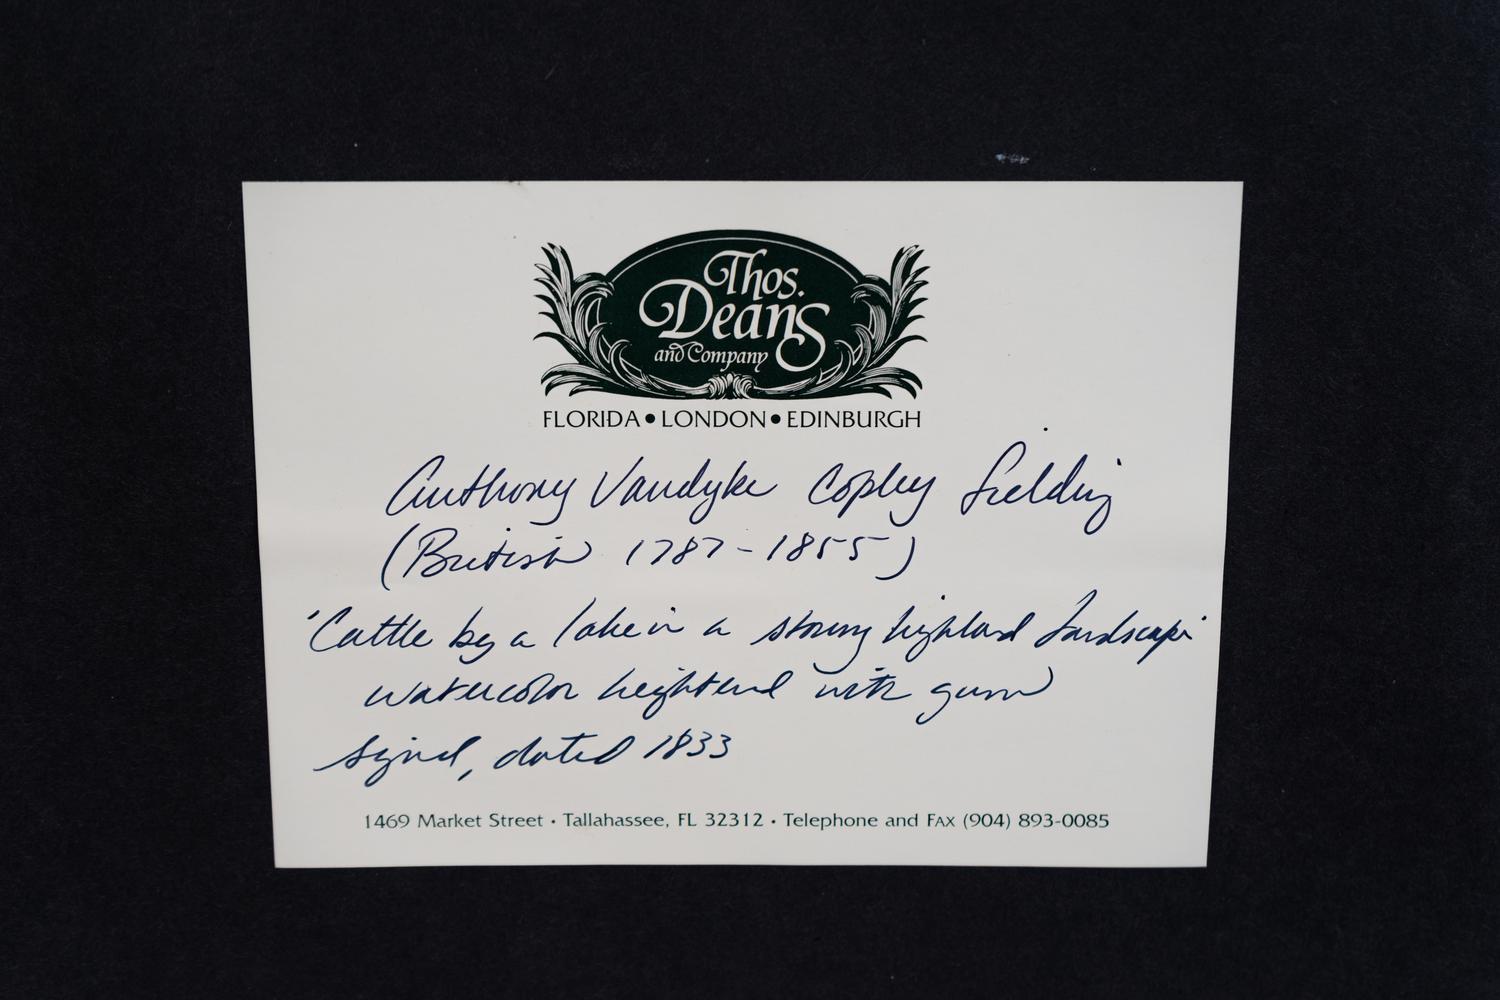 Thos.
Deans
and Company
FLORIDA • LONDON • EDINBURGH
Anthony Vandyke Copley Fielding
(British 1787-1855)
'Cattle by a lake in a stormy highland landscape'
watercolor heightened with gum
signed, dated 1833
1469 Market Street • Tallahassee, FL 32312 • Telephone and FAX (904) 893-0085